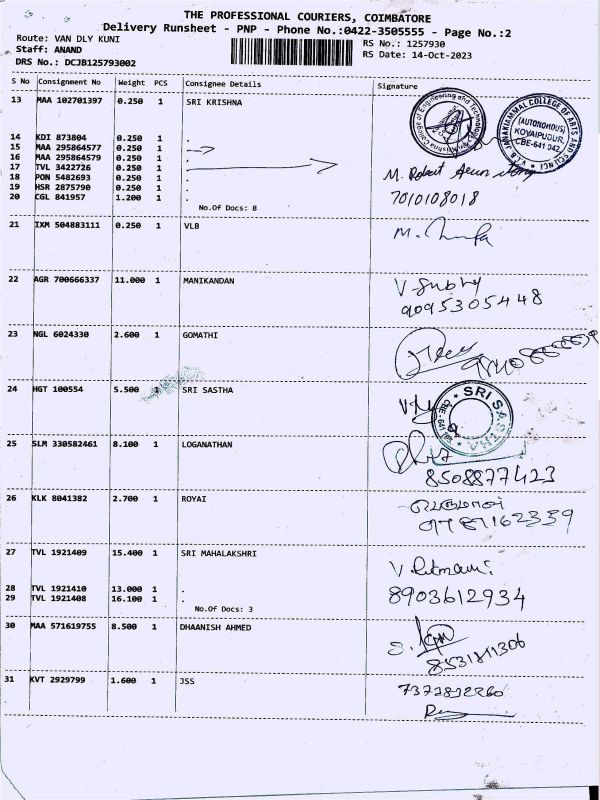 THE PROFESSIONAL COURIERS, COIMBATORE
Delivery Runsheet - PNP - Phone No.:0422-3505555 - Page No.:2
Route: VAN DLY KUNI
Staff: ANAND
DRS No.: DCJB125793002
RS No.: 1257930
RS Date: 14-Oct-2023
S No Consignment No Weight PCS Consignee Details Signature
13 MAA 102701397 0.250 1 SRI KRISHNA
14 KDI 873804 0.250 1 .
15 MAA 295864577 0.250 1 .
16 MAA 295864579 0.250 1 .
17 TVL 3422726 0.250 1 .
18 PON 5482693 0.250 1 .
19 HSR 2875790 0.250 1 .
20 CGL 841957 1.200 1 .
No.Of Docs: 8
(AUTONOMOUS)
KOVAIPUDUR,
CBE-641 042.
V.L.B. JANAKIAMMAL COLLEGE OF ARTS AND SCIENCE
M. Robert
7010108018
21 IXM 504883111 0.250 1 VLB
M.
22 AGR 700666337 11.000 1 MANIKANDAN
9095305448
23 NGL 6024330 2.600 1 GOMATHI
24 HGT 100554 5.500 1 SRI SASTHA
SRI SASTHA
25 SLM 330582461 8.100 1 LOGANATHAN
8508877423
26 KLK 8041382 2.700 1 ROYAI
27 TVL 1921409 15.400 1 SRI MAHALAKSHRI
28 TVL 1921410 13.000 1 .
29 TVL 1921408 16.100 1 .
No.Of Docs: 3
8903612934
30 MAA 571619755 8.500 1 DHAANISH AHMED
31 KVT 2929799 1.600 1 JSS